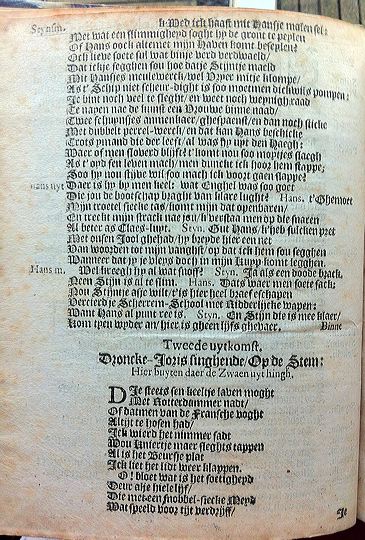 Stynsin. k Wed ick haast uit Hansje malen sel:
Met wat een slimmigheyd soght hy de gront te peylen
Of Hans oock altemet mijn Haven komt beseylen?
Och lieve soete sul wat binje verd verdwaeld/
Dat ickje segghen sou hoe datje Stijntje maeld
Mit Hansjes meulewerck/
As t' Schip niet scheur-dight is soo moetmen dickwils pompen:
Je bint noch veel te sleght/ en weet noch weynigh raad
Te napen nae de kunst een Vrouwe binne naad/
Twee schupnsjes annenkaer/ ghespaenst/ en dan noch slicke
Met dubbelt perreel-werck/ en dat kan Hans beschicke
Trots ymand die der leeft/ al was hy upt den Haegh:
Waer of men slowerd blijft? komt noit soo moytjes slaegh
As t' oyd sen leven nach/ men dunckt ick hoor hem stappe;
Soo hy nou stijve wil soo mach ick voort gaen slappe?
Hans uyt Daer is hy by men keel: wat Enghel was soo goet
Die jou de bootschap braght van klare lught? Hans. t' Ghemoet
Mijn troetel soetle tas/ komt mijn dat openbaren/
En treckt mijn strack nae jou/ k verstaa men op die snaren
Al beter as Claes-luyt. Styn. Gut Hans/ k heb sulcken pret
Met onsen Jool ghehad/ hy breyde hier een net
Van woorden tot mijn vanghst/ op dat ick hem sou segghen
Wanneer dat jy je vleys doch in mijn Kuyp komt legghen.
Hans m. Wel kreegh hy al wat snof? Styn. Ja als een doode brack.
Neen Stijn is al te slim. Hans. Dats waer men soete sack;
Nou Stijntje asje wilt/ t'is hier heel braef eschapen
Vercierd je Scherrem-School mit Ridderlijcke wapen:
Want Hans al punt reets. Styn. En Stijn die is mee klaer/
Kom treen wyder an/ hier is gheen lijfs ghevaer. Binne
Tweede uytkomst.
Droncke-Joris singhende/ Op de Stem:
Hier buyten daer de Zwaen uyt hingh.
DIe steets sen keeltje laven moght
Met Rotterdammer nadt/
Of datmen van de Fransche voght
Altijt te hosen had/
Ick wierd het nimmer sadt
Wou Kniertje maer sleghts tappen
Al is het Beursje plat
Ick liet het lidt weer klappen.
O! bloet wat is het soetigheyd
Deur alje hiele lijf/
Die met een snobbel-siecke Meyd
Wat speeld voor tijt verdrijff/
Je